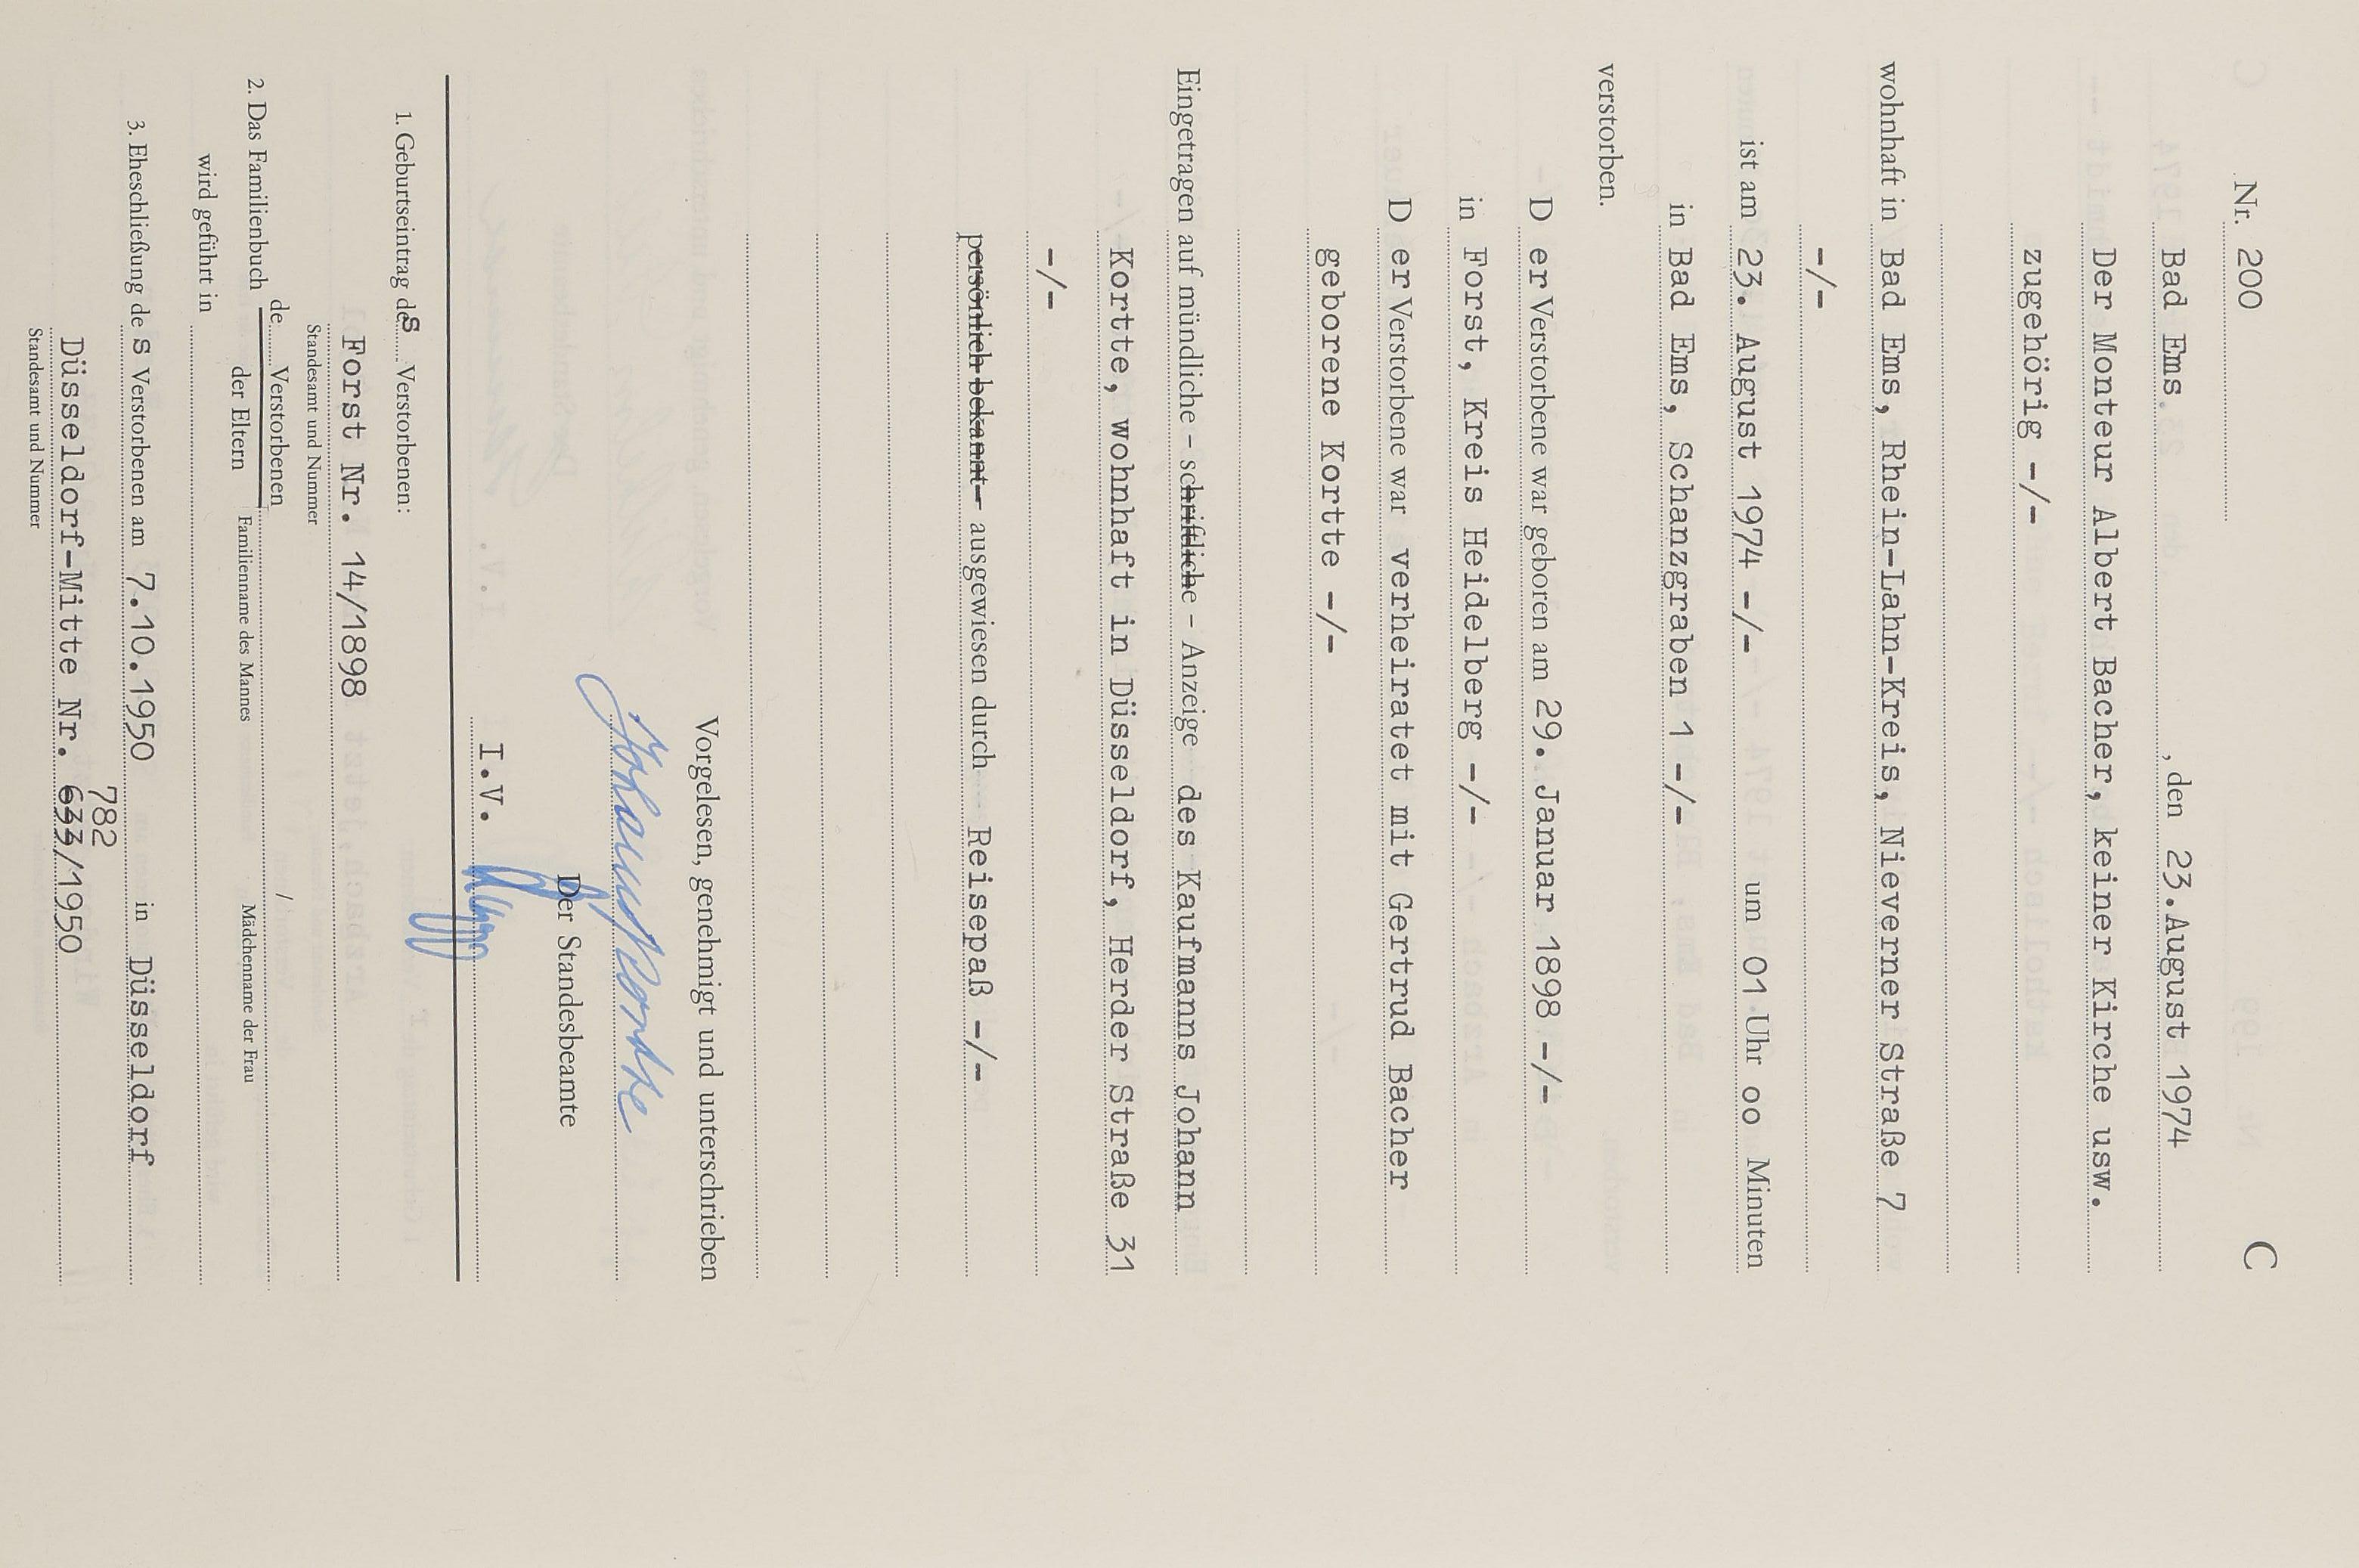 C
Nr. 200
Bad Ems, den 23. August 1974
Der Monteur Albert Bacher, keiner Kirche usw.
zugehörig -/-
wohnhaft in Bad Ems, Rhein-Lahn-Kreis, Nieverner Straße 7
-/-
ist am 23. August 1974 -/- um 01 Uhr oo Minuten
in Bad Ems, Schanzgraben 1 -/-
verstorben.
D er Verstorbene war geboren am 29. Januar 1898 -/-
in Forst, Kreis Heidelberg -/-
D er Verstorbene war verheiratet mit Gertrud Bacher
geborene Kortte -/-
Eingetragen auf mündliche – schriftliche – Anzeige des Kaufmanns Johann
Kortte, wohnhaft in Düsseldorf, Herder Straße 31
-/-
persönlich bekannt – ausgewiesen durch Reisepaß -/-
Vorgelesen, genehmigt und unterschrieben
Johann Kortte
Der Standesbeamte
I.V.
1. Geburtseintrag des Verstorbenen:
Forst Nr. 14/1898
Standesamt und Nummer
2. Das Familienbuch de Verstorbenen
der Eltern
/
Familienname des Mannes Mädchenname der Frau
wird geführt in
3. Eheschließung de s Verstorbenen am 7.10.1950 in Düsseldorf
782
Düsseldorf-Mitte Nr. 633/1950
Standesamt und Nummer